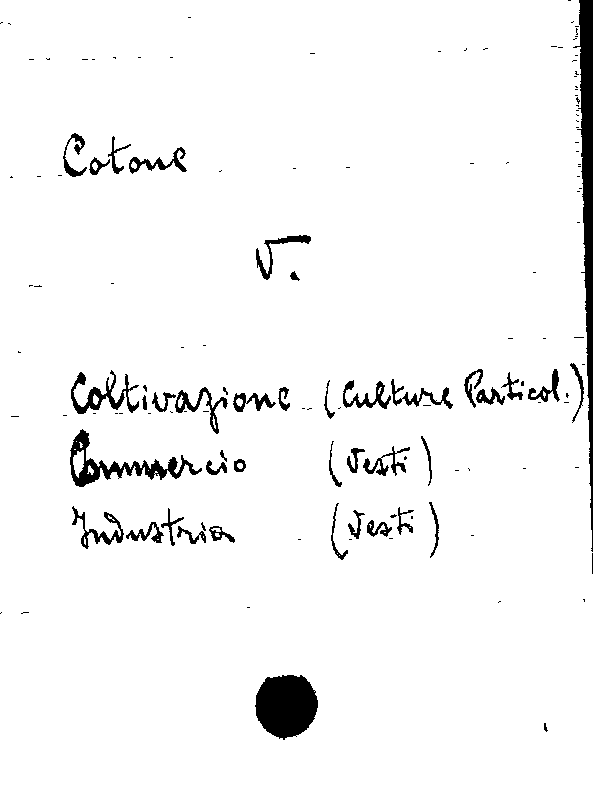 Cotone
V.
Coltivazione (Culture Particol.)
Commercio (Vesti)
Industria (Vesti)